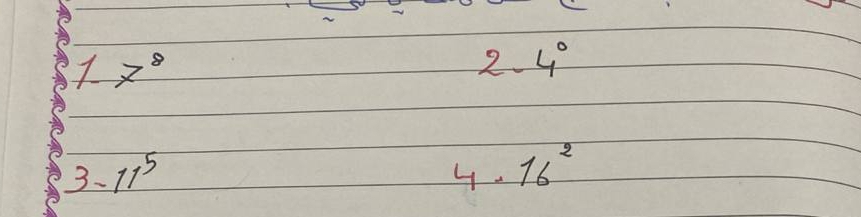 1- 7⁸ 2- 4⁰
3- 11⁵ 4- 16²